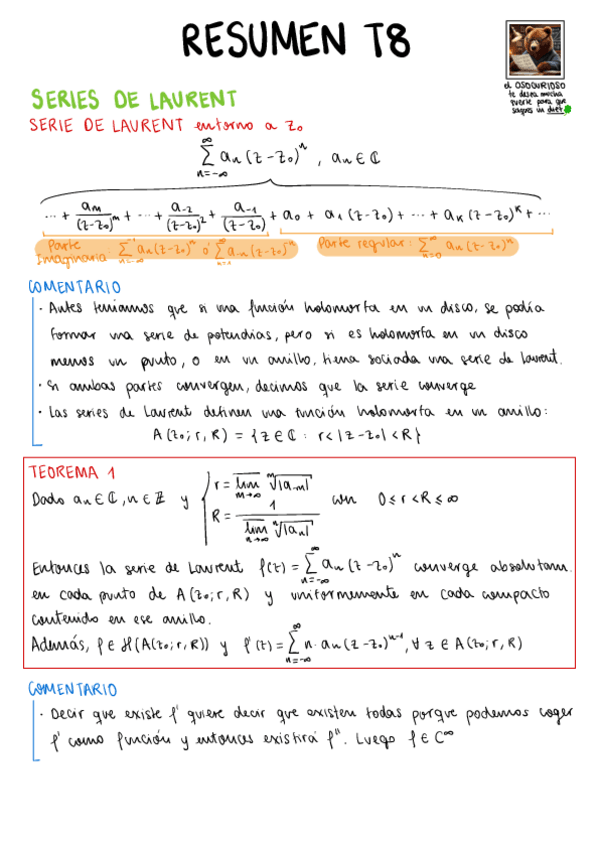 RESUMEN T8
el OSOCURIOSO
te desea mucha
suerte para que
saques un diez
SERIES DE LAURENT
SERIE DE LAURENT entorno a z₀
∑_{n=-∞}^{∞} aₙ(z-z₀)ⁿ , aₙ ∈ ℂ
··· + aₘ/(z-z₀)ᵐ + ··· + a₋₂/(z-z₀)² + a₋₁/(z-z₀) + a₀ + a₁(z-z₀) + ··· + aₖ(z-z₀)ᵏ + ···
Parte Imaginaria ∑_{n=-∞}^{-1} aₙ(z-z₀)ⁿ ó ∑_{n=1}^{∞} a₋ₙ(z-z₀)⁻ⁿ Parte regular: ∑_{n=0}^{∞} aₙ(z-z₀)ⁿ
COMENTARIO
· Antes teníamos que si una función holomorfa en un disco, se podía
formar una serie de potencias, pero si es holomorfa en un disco
menos un punto, o en un anillo, tiena sociada una serie de Laurent.
· Si ambas partes convergen, decimos que la serie converge
· Las series de Laurent definen una función holomorfa en un anillo:
A(z₀; r, R) = {z ∈ ℂ : r < |z-z₀| < R}
TEOREMA 1
Dado aₙ ∈ ℂ, n ∈ ℤ y { r = lim̅_{m→∞} ᵐ√|a₋ₘ| R = 1/(lim̅_{n→∞} ⁿ√|aₙ|) con 0 ≤ r < R ≤ ∞
Entonces la serie de Laurent f(z) = ∑_{n=-∞}^{∞} aₙ(z-z₀)ⁿ converge absolutam.
en cada punto de A(z₀; r, R) y uniformemente en cada compacto
contenido en ese anillo.
Además, f ∈ ℋ(A(z₀; r, R)) y f'(z) = ∑_{n=-∞}^{∞} n·aₙ(z-z₀)ⁿ⁻¹, ∀ z ∈ A(z₀; r, R)
COMENTARIO
· Decir que existe f' quiere decir que existen todas porque podemos coger
f' como función y entonces existirá f''. Luego f ∈ C^∞